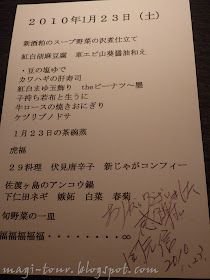 ２０１０年１月２３日（土）
新酒粕のスープ野菜の沢煮仕立て
紅白胡麻豆腐　車エビ山葵醤油和え
・豆の塩ゆで
カワハギの肝寿司
紅白まゆ玉飾り　theピーナツ～墨
子持ち若布と生うに
牛ロースの焼きおにぎり
ケヅリブノドサ
１月２３日の茶碗蒸
虎福
２９料理　伏見唐辛子　新じゃがコンフィー
佐渡ヶ島のアンコウ鍋
下仁田ネギ　嫉妬　白菜　春菊
旬野菜の一皿
福福福福福・・・・・・・・∞
2010.1.23.
magi-tour.blogspot.com